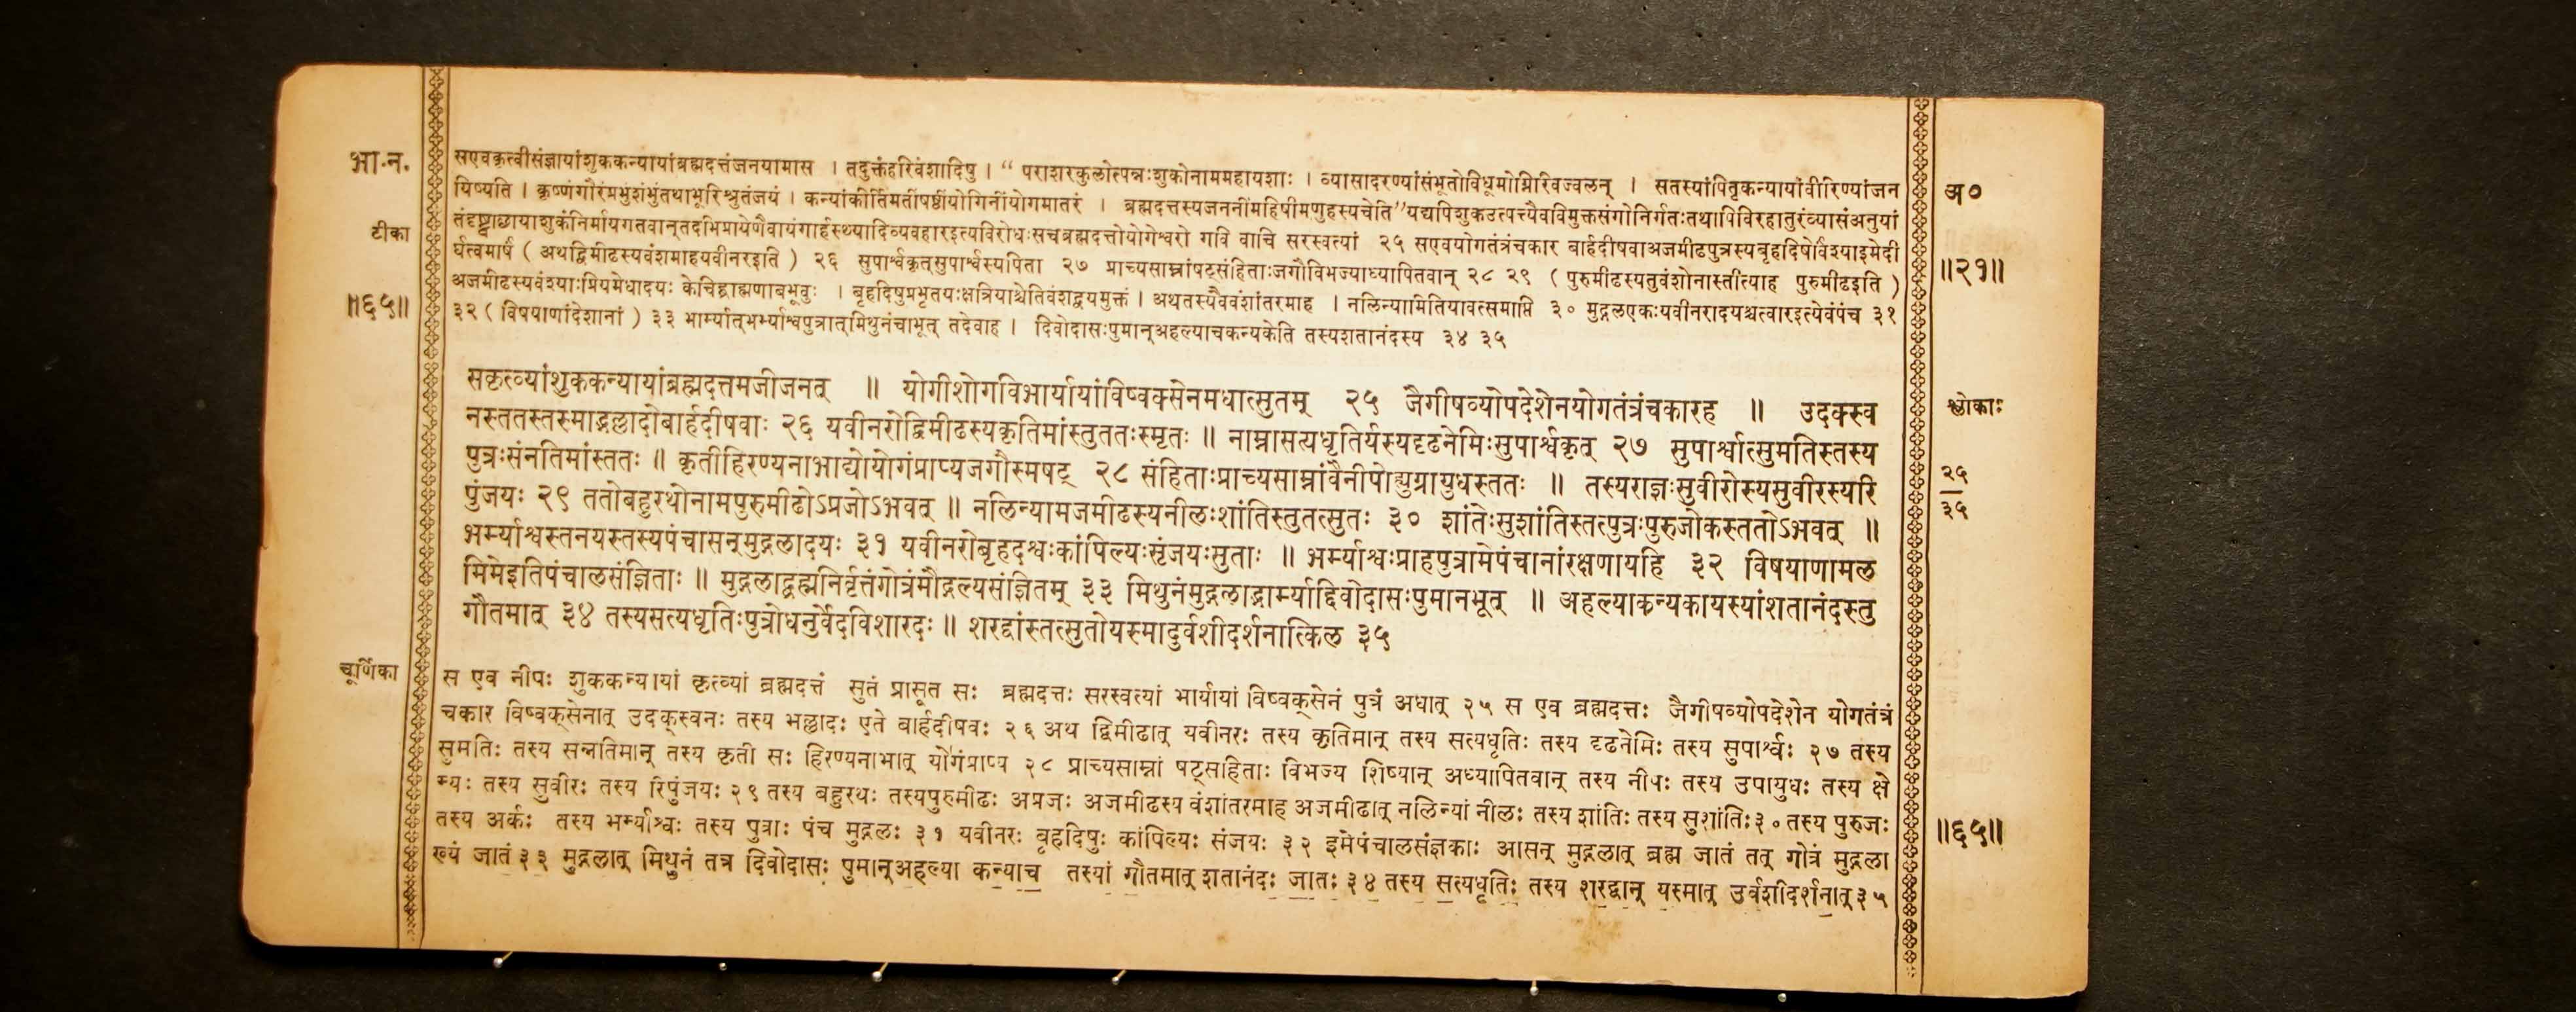 भा.न.
सएवकृत्वीसंज्ञायांशुककन्यायांब्रह्मदत्तंजनयामास । तदुक्तंहरिवंशादिषु । “ पराशरकुलोत्पन्नःशुकोनाममहायशाः । व्यासादरण्यांसंभूतोविधूमोग्निरिवज्वलन् । सतस्यांपितृकन्यायांवीरिण्यांजन
अ०
यिष्यति । कृष्णंगौरंप्रभुंशंभुंतथाभूरिश्रुतंजयं । कन्यांकीर्तिमतींषष्ठींयोगिनींयोगमातरं । ब्रह्मदत्तस्यजननींमहिषीमणुहस्यचेति”यद्यपिशुकउत्पत्त्यैवविमुक्तसंगोनिर्गतःतथापिविरहातुरंव्यासंअनुयां
टीका
तंदृष्ट्वाछायाशुकंनिर्मायगतवान्तदभिप्रायेणैवायंगार्हस्थ्यादिव्यवहारइत्यविरोधःसचब्रह्मदत्तोयोगेश्वरो गवि वाचि सरस्वत्यां २५ सएवयोगतंत्रंचकार बार्हदीषवाअजमीढपुत्रस्यबृहदिषोर्वंश्याइमेदी
॥२१॥
र्घत्वमार्षं ( अथद्विमीढस्यवंशमाहयवीनरइति ) २६ सुपार्श्वकृत्सुपार्श्वस्यपिता २७ प्राच्यसाम्नांषट्संहिताःजगौविभज्याध्यापितवान् २८ २९ ( पुरुमीढस्यतुवंशोनास्तीत्याह पुरुमीढइति )
॥६५॥
अजमीढस्यवंश्याःप्रियमेधादयः केचिद्ब्राह्मणाबभूवुः । बृहदिषुप्रभृतयःक्षत्रियाश्चेतिवंशद्वयमुक्तं । अथतस्यैववंशांतरमाह । नलिन्यामितियावत्समाप्ति ३० मुद्गलएकःयवीनरादयश्चत्वारइत्येवंपंच ३१
३२ ( विषयाणांदेशानां ) ३३ भार्म्यात्भर्म्याश्वपुत्रात्मिथुनंचाभूत् तदेवाह । दिवोदासःपुमान्अहल्याचकन्यकेति तस्यशतानंदस्य ३४ ३५
सकृत्व्यांशुककन्यायांब्रह्मदत्तमजीजनत् ॥ योगीशोगविभार्यायांविष्वक्सेनमधात्सुतम् २५ जैगीषव्योपदेशेनयोगतंत्रंचकारह ॥ उदक्स्व
श्लोकाः
नस्ततस्तस्माद्भल्लादोबार्हदीषवाः २६ यवीनरोद्विमीढस्यकृतिमांस्तुततःस्मृतः ॥ नाम्नासत्यधृतिर्यस्यदृढनेमिःसुपार्श्वकृत् २७ सुपार्श्वात्सुमतिस्तस्य
पुत्रःसंनतिमांस्ततः ॥ कृतीहिरण्यनाभाद्योयोगंप्राप्यजगौस्मषट् २८ संहिताःप्राच्यसाम्नांवैनीपोह्युग्रायुधस्ततः ॥ तस्यराज्ञःसुवीरोस्यसुवीरस्यरि
२५
३५
पुंजयः २९ ततोबहुरथोनामपुरुमीढोऽप्रजोऽभवत् ॥ नलिन्यामजमीढस्यनीलःशांतिस्तुतत्सुतः ३० शांतेःसुशांतिस्तत्पुत्रःपुरुजोकस्ततोऽभवत् ॥
भर्म्याश्वस्तनयस्तस्यपंचासन्मुद्गलादयः ३१ यवीनरोबृहदश्वःकांपिल्यःसृंजयःसुताः ॥ भर्म्याश्वःप्राहपुत्रामेपंचानांरक्षणायहि ३२ विषयाणामल
मिमेइतिपंचालसंज्ञिताः ॥ मुद्गलाद्ब्रह्मनिर्वृत्तंगोत्रंमौद्गल्यसंज्ञितम् ३३ मिथुनंमुद्गलाद्भार्म्याद्दिवोदासःपुमानभूत् ॥ अहल्याकन्यकायस्यांशतानंदस्तु
गौतमात् ३४ तस्यसत्यधृतिःपुत्रोधनुर्वेदविशारदः ॥ शरद्वांस्तत्सुतोयस्मादुर्वशीदर्शनात्किल ३५
चूर्णिका
स एव नीपः शुककन्यायां कृत्व्यां ब्रह्मदत्तं सुतं प्रासूत सः ब्रह्मदत्तः सरस्वत्यां भार्यायां विष्वक्सेनं पुत्रं अधात् २५ स एव ब्रह्मदत्तः जैगीषव्योपदेशेन योगतंत्रं
चकार विष्वक्सेनात् उदक्स्वनः तस्य भल्लादः एते बार्हदीषवः २६ अथ द्विमीढात् यवीनरः तस्य कृतिमान् तस्य सत्यधृतिः तस्य दृढनेमिः तस्य सुपार्श्वः २७ तस्य
सुमतिः तस्य सन्नतिमान् तस्य कृती सः हिरण्यनाभात् योगंप्राप्य २८ प्राच्यसाम्नां षट्संहिताः विभज्य शिष्यान् अध्यापितवान् तस्य नीपः तस्य उपायुधः तस्य क्षे
म्यः तस्य सुवीरः तस्य रिपुंजयः २९ तस्य बहुरथः तस्यपुरुमीढः अप्रजः अजमीढस्य वंशांतरमाह अजमीढात् नलिन्यां नीलः तस्य शांतिः तस्य सुशांतिः३०तस्य पुरुजः
तस्य अर्कः तस्य भर्म्याश्वः तस्य पुत्राः पंच मुद्गलः ३१ यवीनरः बृहदिषुः कांपिल्यः संजयः ३२ इमेपंचालसंज्ञकाः आसन् मुद्गलात् ब्रह्म जातं तत् गोत्रं मुद्गला
॥६५॥
ख्यं जातं३३ मुद्गलात् मिथुनं तत्र दिवोदासः पुमान्अहल्या कन्याच तस्यां गौतमात् शतानंदः जातः ३४ तस्य सत्यधृतिः तस्य शरद्वान् यस्मात् उर्वशीदर्शनात्३५